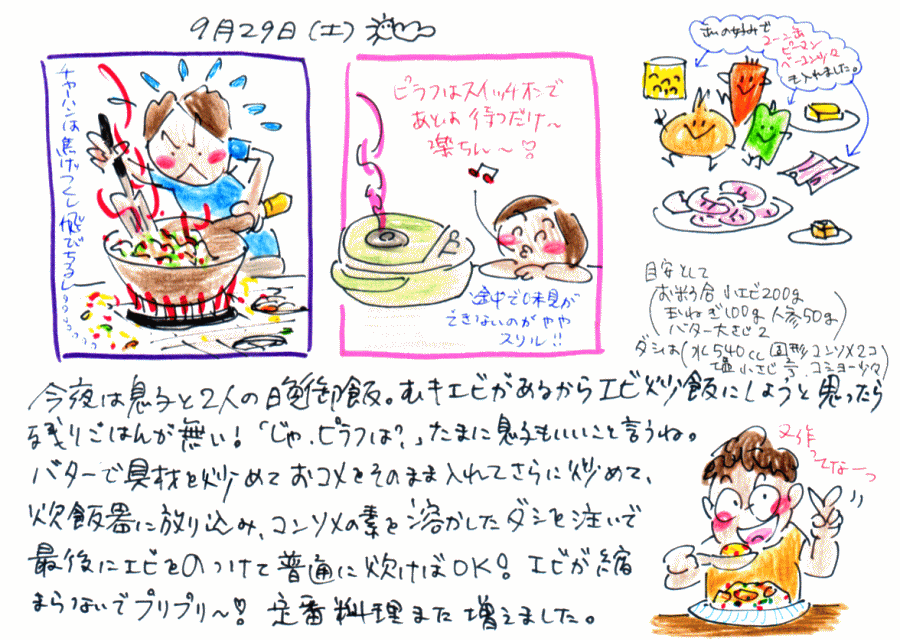 9月29日(土)
チャハンは焦げつくし飛びちるし
ピラフはスイッチオンで
あとは待つだけ〜
楽ちん〜♡
途中で味見が
できないのがやや
スリル!!
お好みで
コーン缶
ピーマン
ベーコン少々
も入れました。
目安として
小エビ200g
玉ねぎ100g 人参50g
バター大さじ2
ダシは(水540cc 固形コンソメ2コ
塩小さじ コショー少々
今夜は息子と2人の晩御飯。むきエビがあるからエビ炒飯にしようと思ったら
残りごはんが無い!「じゃ、ピラフは?」たまに息子もいいこと言うね。
バターで具材を炒めておコメをそのまま入れてさらに炒めて、
炊飯器に放り込み、コンソメの素を溶かしたダシを注いで
最後にエビをのっけて普通に炊けばOK! エビが縮
まらないでプリプリ〜! 定番料理また増えました。
又作
ってなーっ